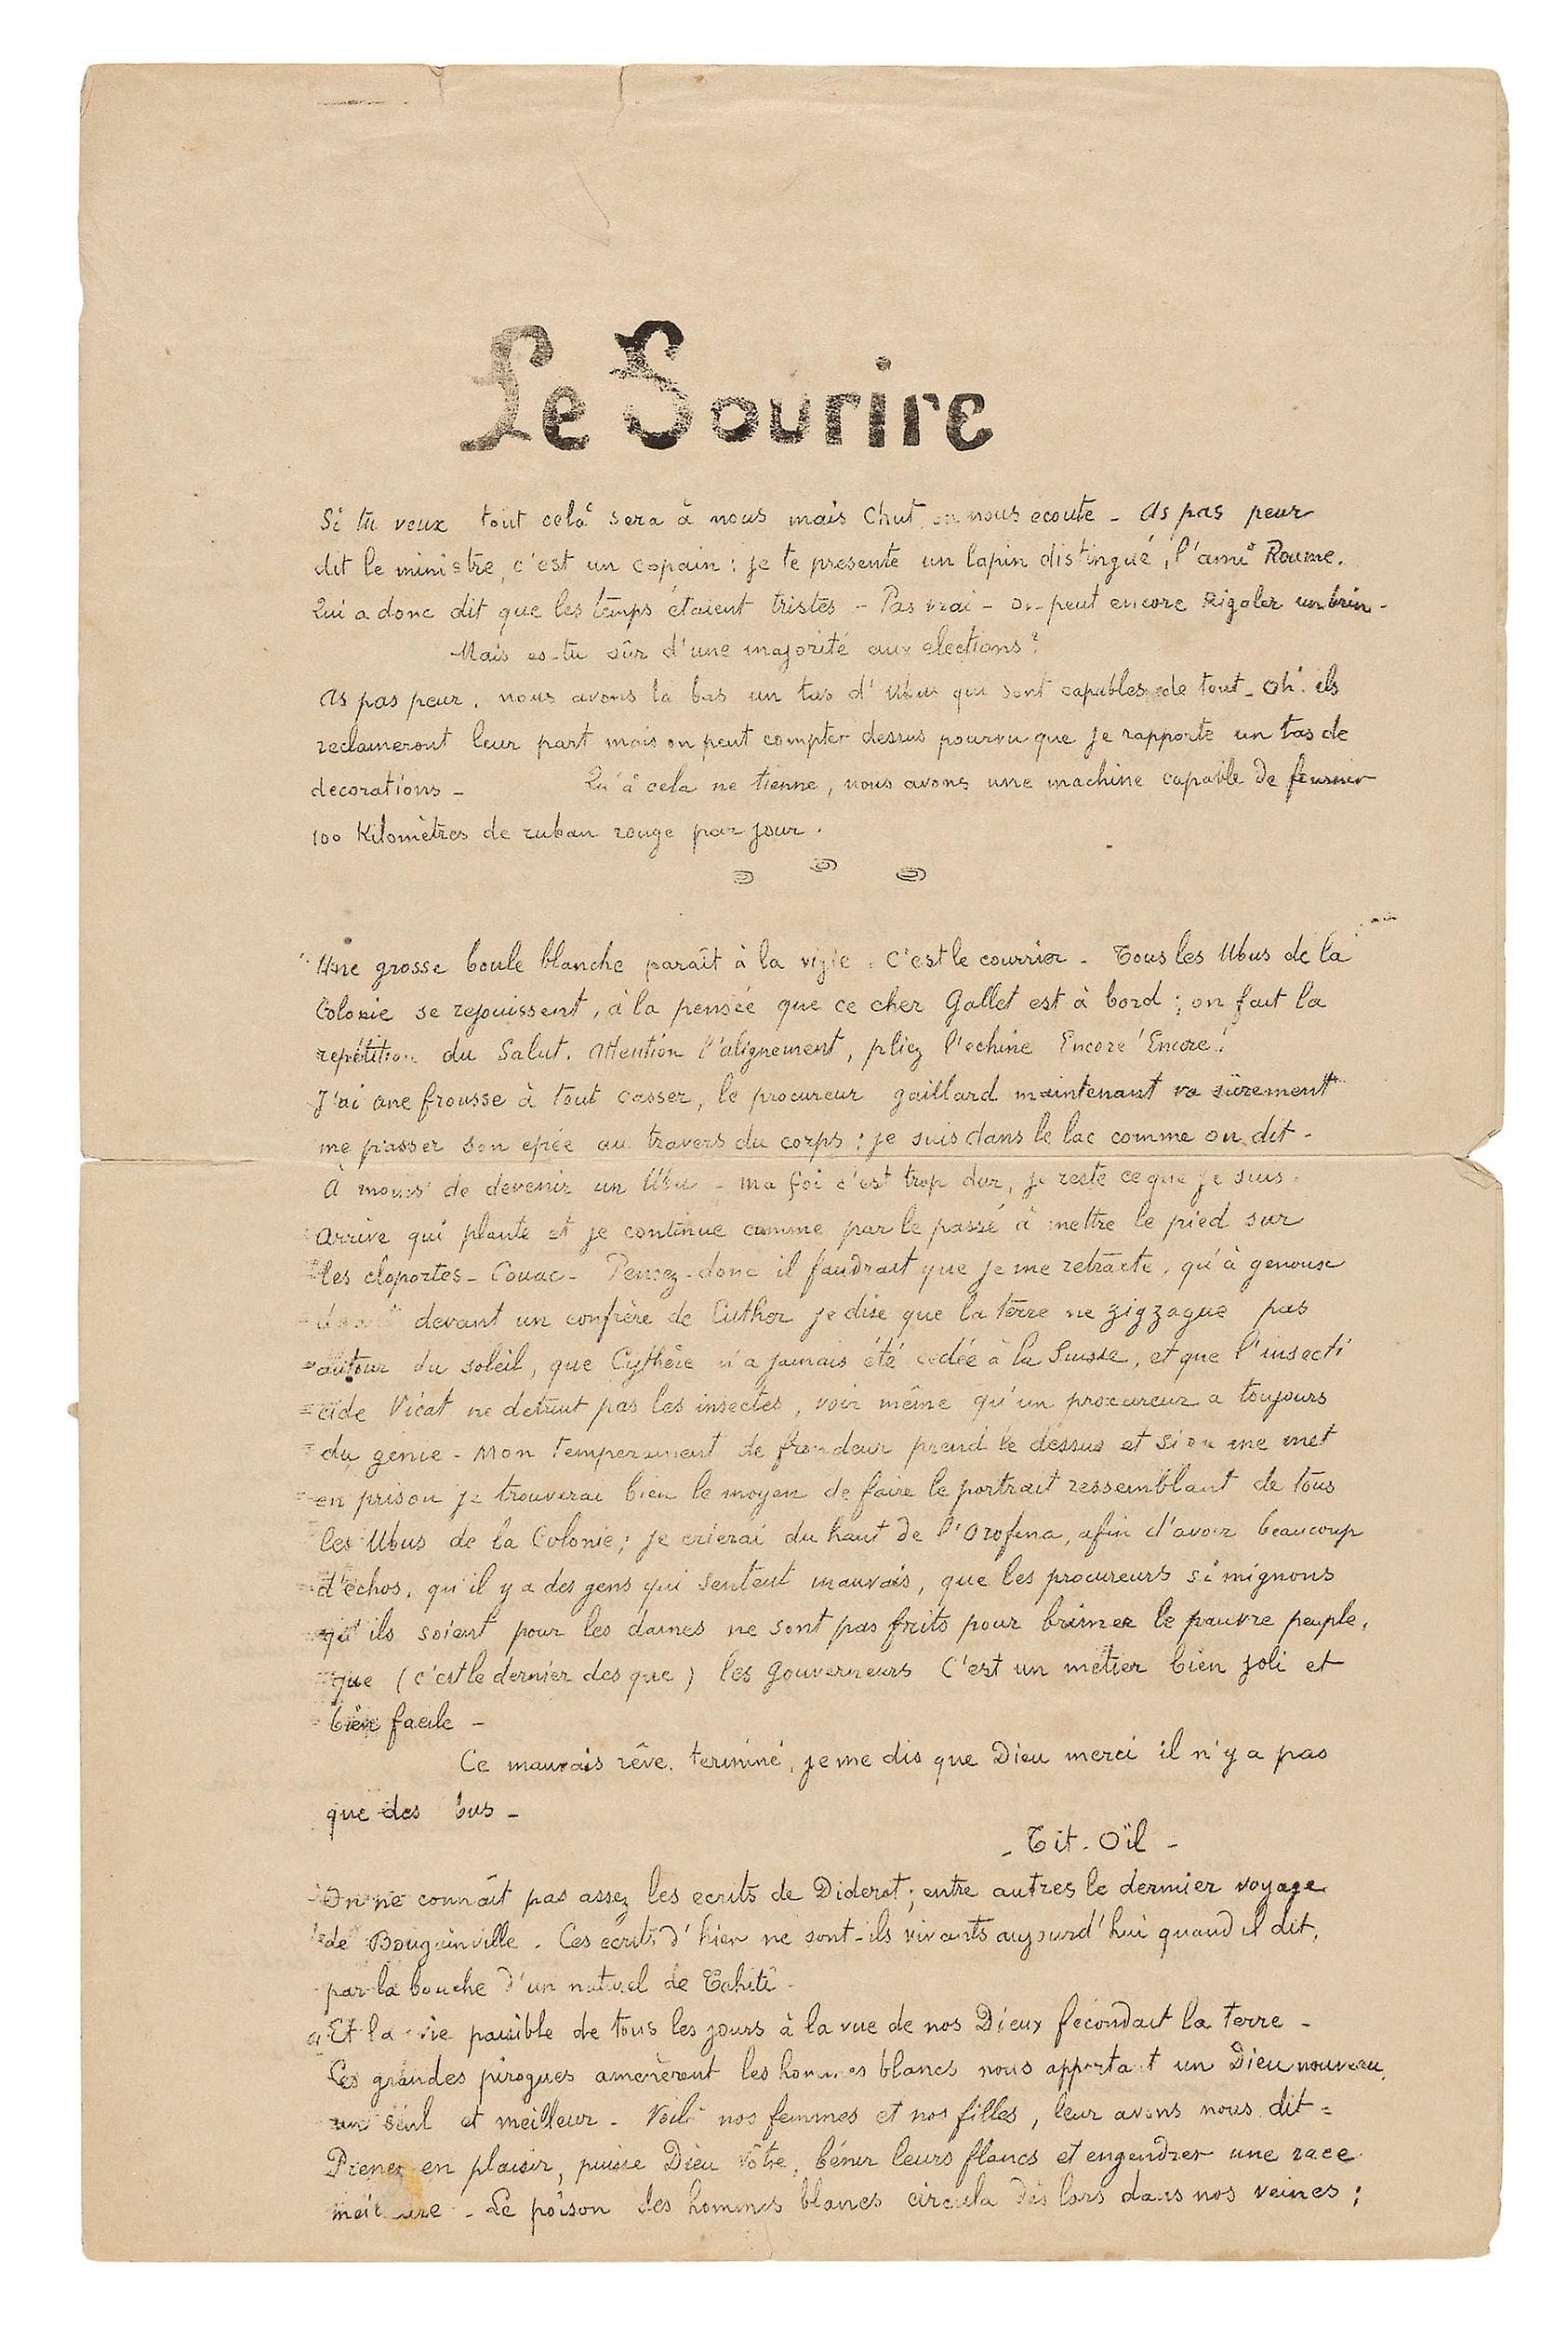 Le Sourire
Si tu veux tout celà sera à nous mais Chut on nous ecoute - As pas peur
dit le ministre, c'est un copain : je te presente un lapin distingué, l'ami Roume.
Qui a donc dit que les temps étaient tristes - Pas vrai - On peut encore Rigoler un brin -
Mais es-tu sûr d'une majorité aux elections ?
As pas peur, nous avons là bas un tas d'Ubu qui sont capables de tout - Oh ! ils
reclameront leur part mais on peut compter dessus pourvu que je rapporte un tas de
decorations - Qu'à cela ne tienne, nous avons une machine capable de fournir
100 Kilomètres de ruban rouge par jour.
Une grosse boule blanche paraît à la vigie - C'est le courrier - Tous les Ubus de la
Colonie se rejouissent, à la pensée que ce cher Gallet est à bord ; on fait la
repétition du Salut. Attention l'alignement, pliez l'echine Encore ! Encore !
J'ai une frousse à tout casser, le procureur gaillard maintenant va sûrement
me passer son epée au travers du corps : je suis dans le lac comme on dit -
A moins de devenir un Ubu - ma foi c'est trop dur, je reste ce que je suis -
Arrive qui plante et je continue comme par le passé à mettre le pied sur
les cloportes - Couac - Pensez-donc il faudrait que je me retracte, qu'à genoux
devant un confrère de Luther je dise que la terre ne zigzague pas
autour du soleil, que Cythère n'a jamais été cedée à la Suisse, et que l'insecti
cide Vicat ne detruit pas les insectes, voir même qu'un procureur a toujours
du genie - Mon temperament de frondeur prend le dessus et si on me met
en prison je trouverai bien le moyen de faire le portrait ressemblant de tous
les Ubus de la Colonie ; je crierai du haut de l'Orofena, afin d'avoir beaucoup
d'echos, qu'il y a des gens qui sentent mauvais, que les procureurs si mignons
qu'ils soient pour les dames ne sont pas faits pour brimer le pauvre peuple,
que (c'est le dernier des que) les gouverneurs C'est un métier bien joli et
bien facile -
Ce mauvais rêve terminé, je me dis que Dieu merci il n'y a pas
que des bus -
- Tit-Oïl -
On ne connaît pas assez les ecrits de Diderot ; entre autres le dernier voyage
de Bougainville. Ces ecrits d'hier ne sont-ils vivants aujourd'hui quand il dit,
par la bouche d'un naturel de Tahiti -
Et la vie paisible de tous les jours à la vue de nos Dieux fécondait la terre -
Les grandes pirogues amenèrent les hommes blancs nous apportant un Dieu nouveau,
un seul et meilleur - Voilà nos femmes et nos filles, leur avons nous dit =
Prenez en plaisir, puisse Dieu vôtre, bénir leurs flancs et engendrer une race
meilleure - Le poison des hommes blancs circula dès lors dans nos veines ;